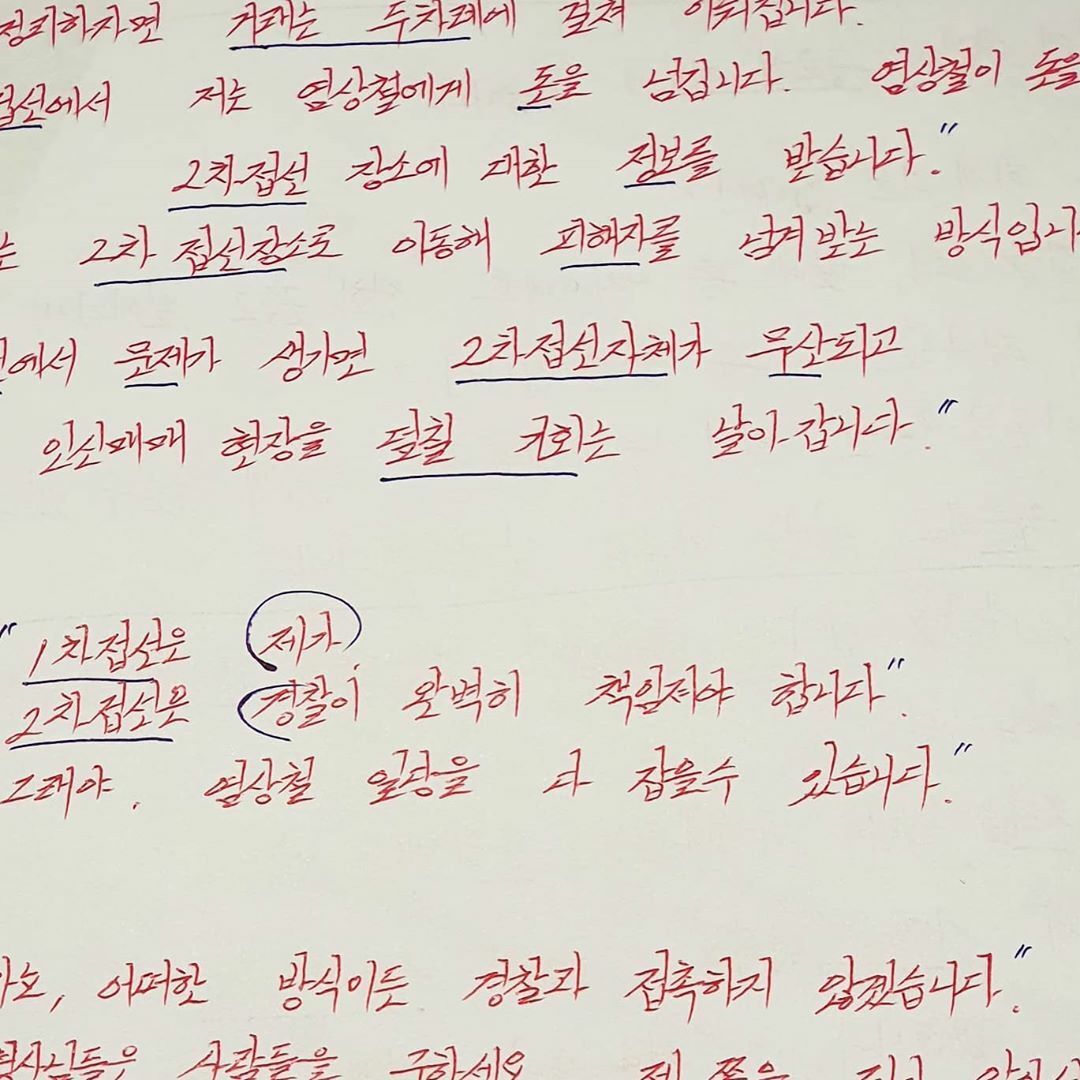 정리하자면 거래는 두차례에 걸쳐 이뤄집니다.
접선에서 저는 염상철에게 돈을 넘깁니다. 염상철이 돈을
2차접선 장소에 대한 정보를 받습니다."
는 2차 접선장소로 이동해 피해자를 넘겨받는 방식입니다
에서 문제가 생기면 2차접선자체가 무산되고
인신매매 현장을 덮칠 기회는 날아갑니다."
"1차접선은 제가,
2차접선은 경찰이 완벽히 책임져야 합니다".
그래야, 염상철 일당을 다 잡을수 있습니다."
어떠한 방식이든 경찰과 접촉하지 않겠습니다."
형사님들은 사람들을 구하세요